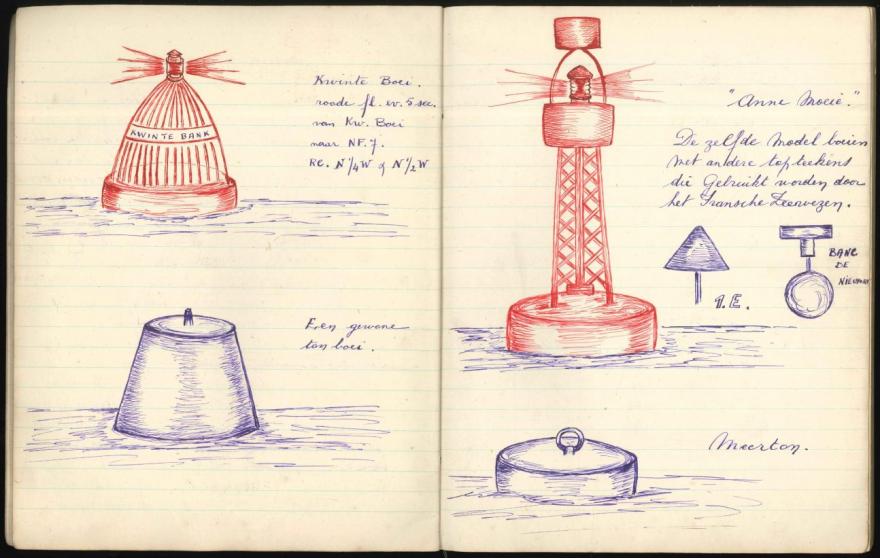 KWINTE BANK
Kwinte Boei.
roode fl. ev. 5 sec.
van Kw. Boei
naar NF. 7.
RC. N¼W & N½W
Een gewone
ton boei.
"Anne Moeie."
De zelfde model boeien
met andere topteekens
die Gebruikt worden door
het Fransche Zeewezen.
1.E.
BANC
DE
NIEUPORT
Meerton.